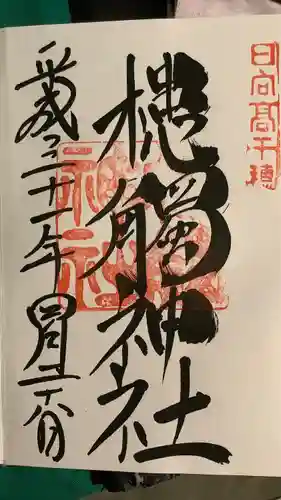 日向高千穂
槵觸神社
平成二十一年四月二十八日